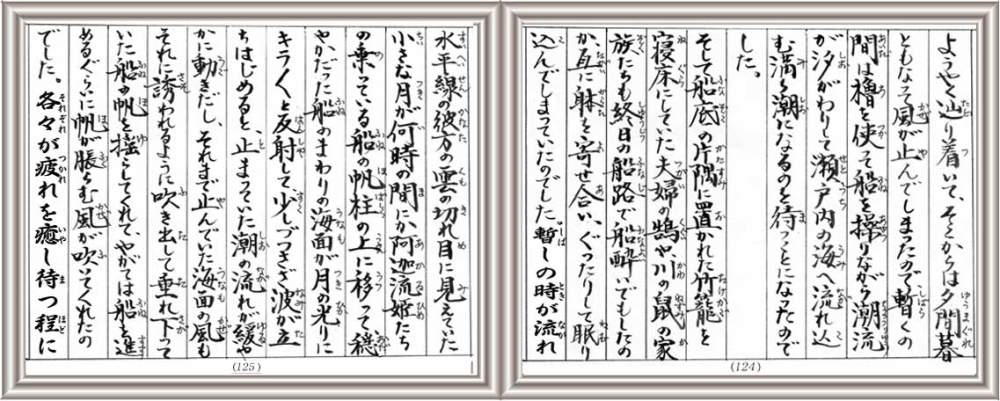 ようやく辿り着いて、そこからは夕間暮
ともなって風が止んでしまったので暫くの
間は櫓を使って船を操りながら潮流
が汐がわりして瀬戸内の海へ流れ込
む満ち潮になるのを待つことになったので
した。
そして船底の片隅に置かれた竹籠を
寝床にしていた夫婦の鵠や川の鼠の家
族たちも終日の船路で船酔いでもしたの
か互に躰を寄せ合い、ぐったりして眠り
込んでしまっていたのでした。暫しの時が流れ
(124)
水平線の彼方の雲の切れ目に見えていた
小さな月が何時の間にか阿迦流姫たち
の乗っている船の帆柱の上に移って穏
やかだった船のまわりの海面が月の光りに
キラ〱と反射して少しづつさざ波が立
ちはじめると、止まっていた潮の流れが緩や
かに動きだし、それまで止んでいた海面の風も
それに誘われるように吹き出して垂れ下って
いた船の帆を揺らしてくれて、やがては船を進
めるぐらいに帆が脹らむ風が吹いてくれたの
でした。各々が疲れを癒し待つ程に
(125)